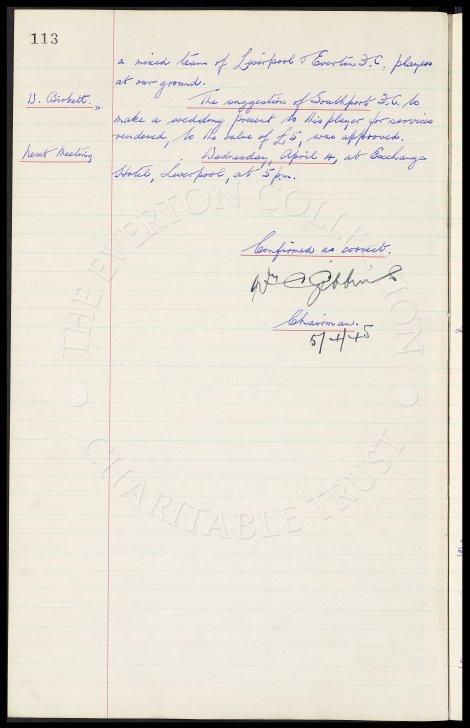 113
a mixed team of Liverpool & Everton F.C. players
at our ground.
D. Birkett.
The suggestion of Southport F.C. to
make a wedding present to this player for services
rendered, to the value of £5, was approved.
Next Meeting
Wednesday, April 4, at Exchange
Hotel, Liverpool, at 5 pm.
Confirmed as correct.
Wm C Gibbins
Chairman.
5/4/45
THE EVERTON COLLECTION
CHARITABLE TRUST